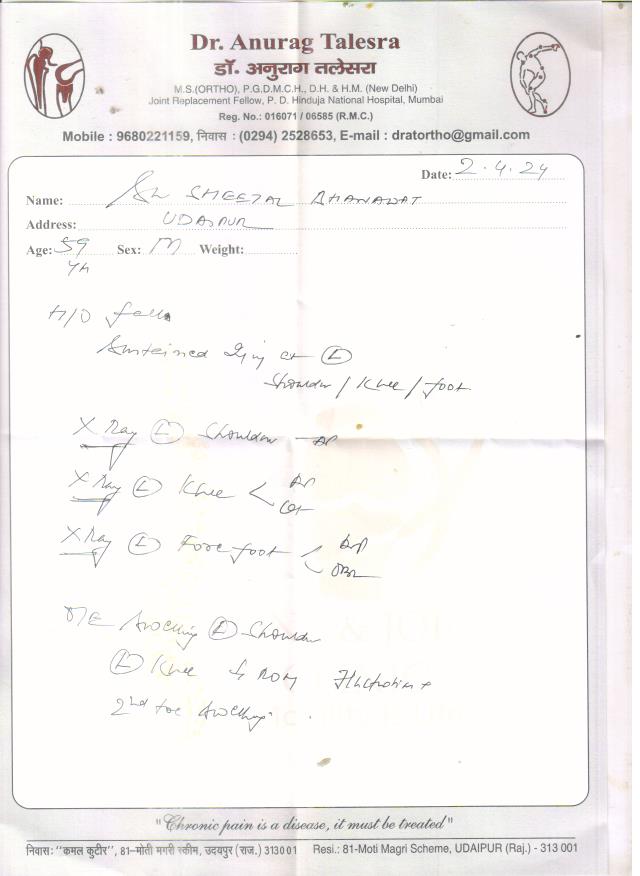 Dr. Anurag Talesra
डॉ. अनुराग तलेसरा
M.S.(ORTHO), P.G.D.M.C.H., D.H. & H.M. (New Delhi)
Joint Replacement Fellow, P. D. Hinduja National Hospital, Mumbai
Reg. No.: 016071 / 06585 (R.M.C.)
Mobile : 9680221159, निवास : (0294) 2528653, E-mail : dratortho@gmail.com
Date: 2.4.24
Name: Sh SHEETAL BHANAWAT
Address: UDAIPUR
Age: 59 Sex: M Weight:
Yh
H/O fall
Sustained Injury at (L)
Shoulder / Knee / foot
X Ray (L) Shoulder – AP
X Ray (L) Knee < AP
Lat
X Ray (L) Forefoot < AP
OBL
O/E Swelling (L) Shoulder
(L) Knee ROM
2nd toe swelling
"Chronic pain is a disease, it must be treated"
निवास: "कमल कुटीर", 81-मोती मगरी स्कीम, उदयपुर (राज.) 313001 Resi.: 81-Moti Magri Scheme, UDAIPUR (Raj.) - 313 001